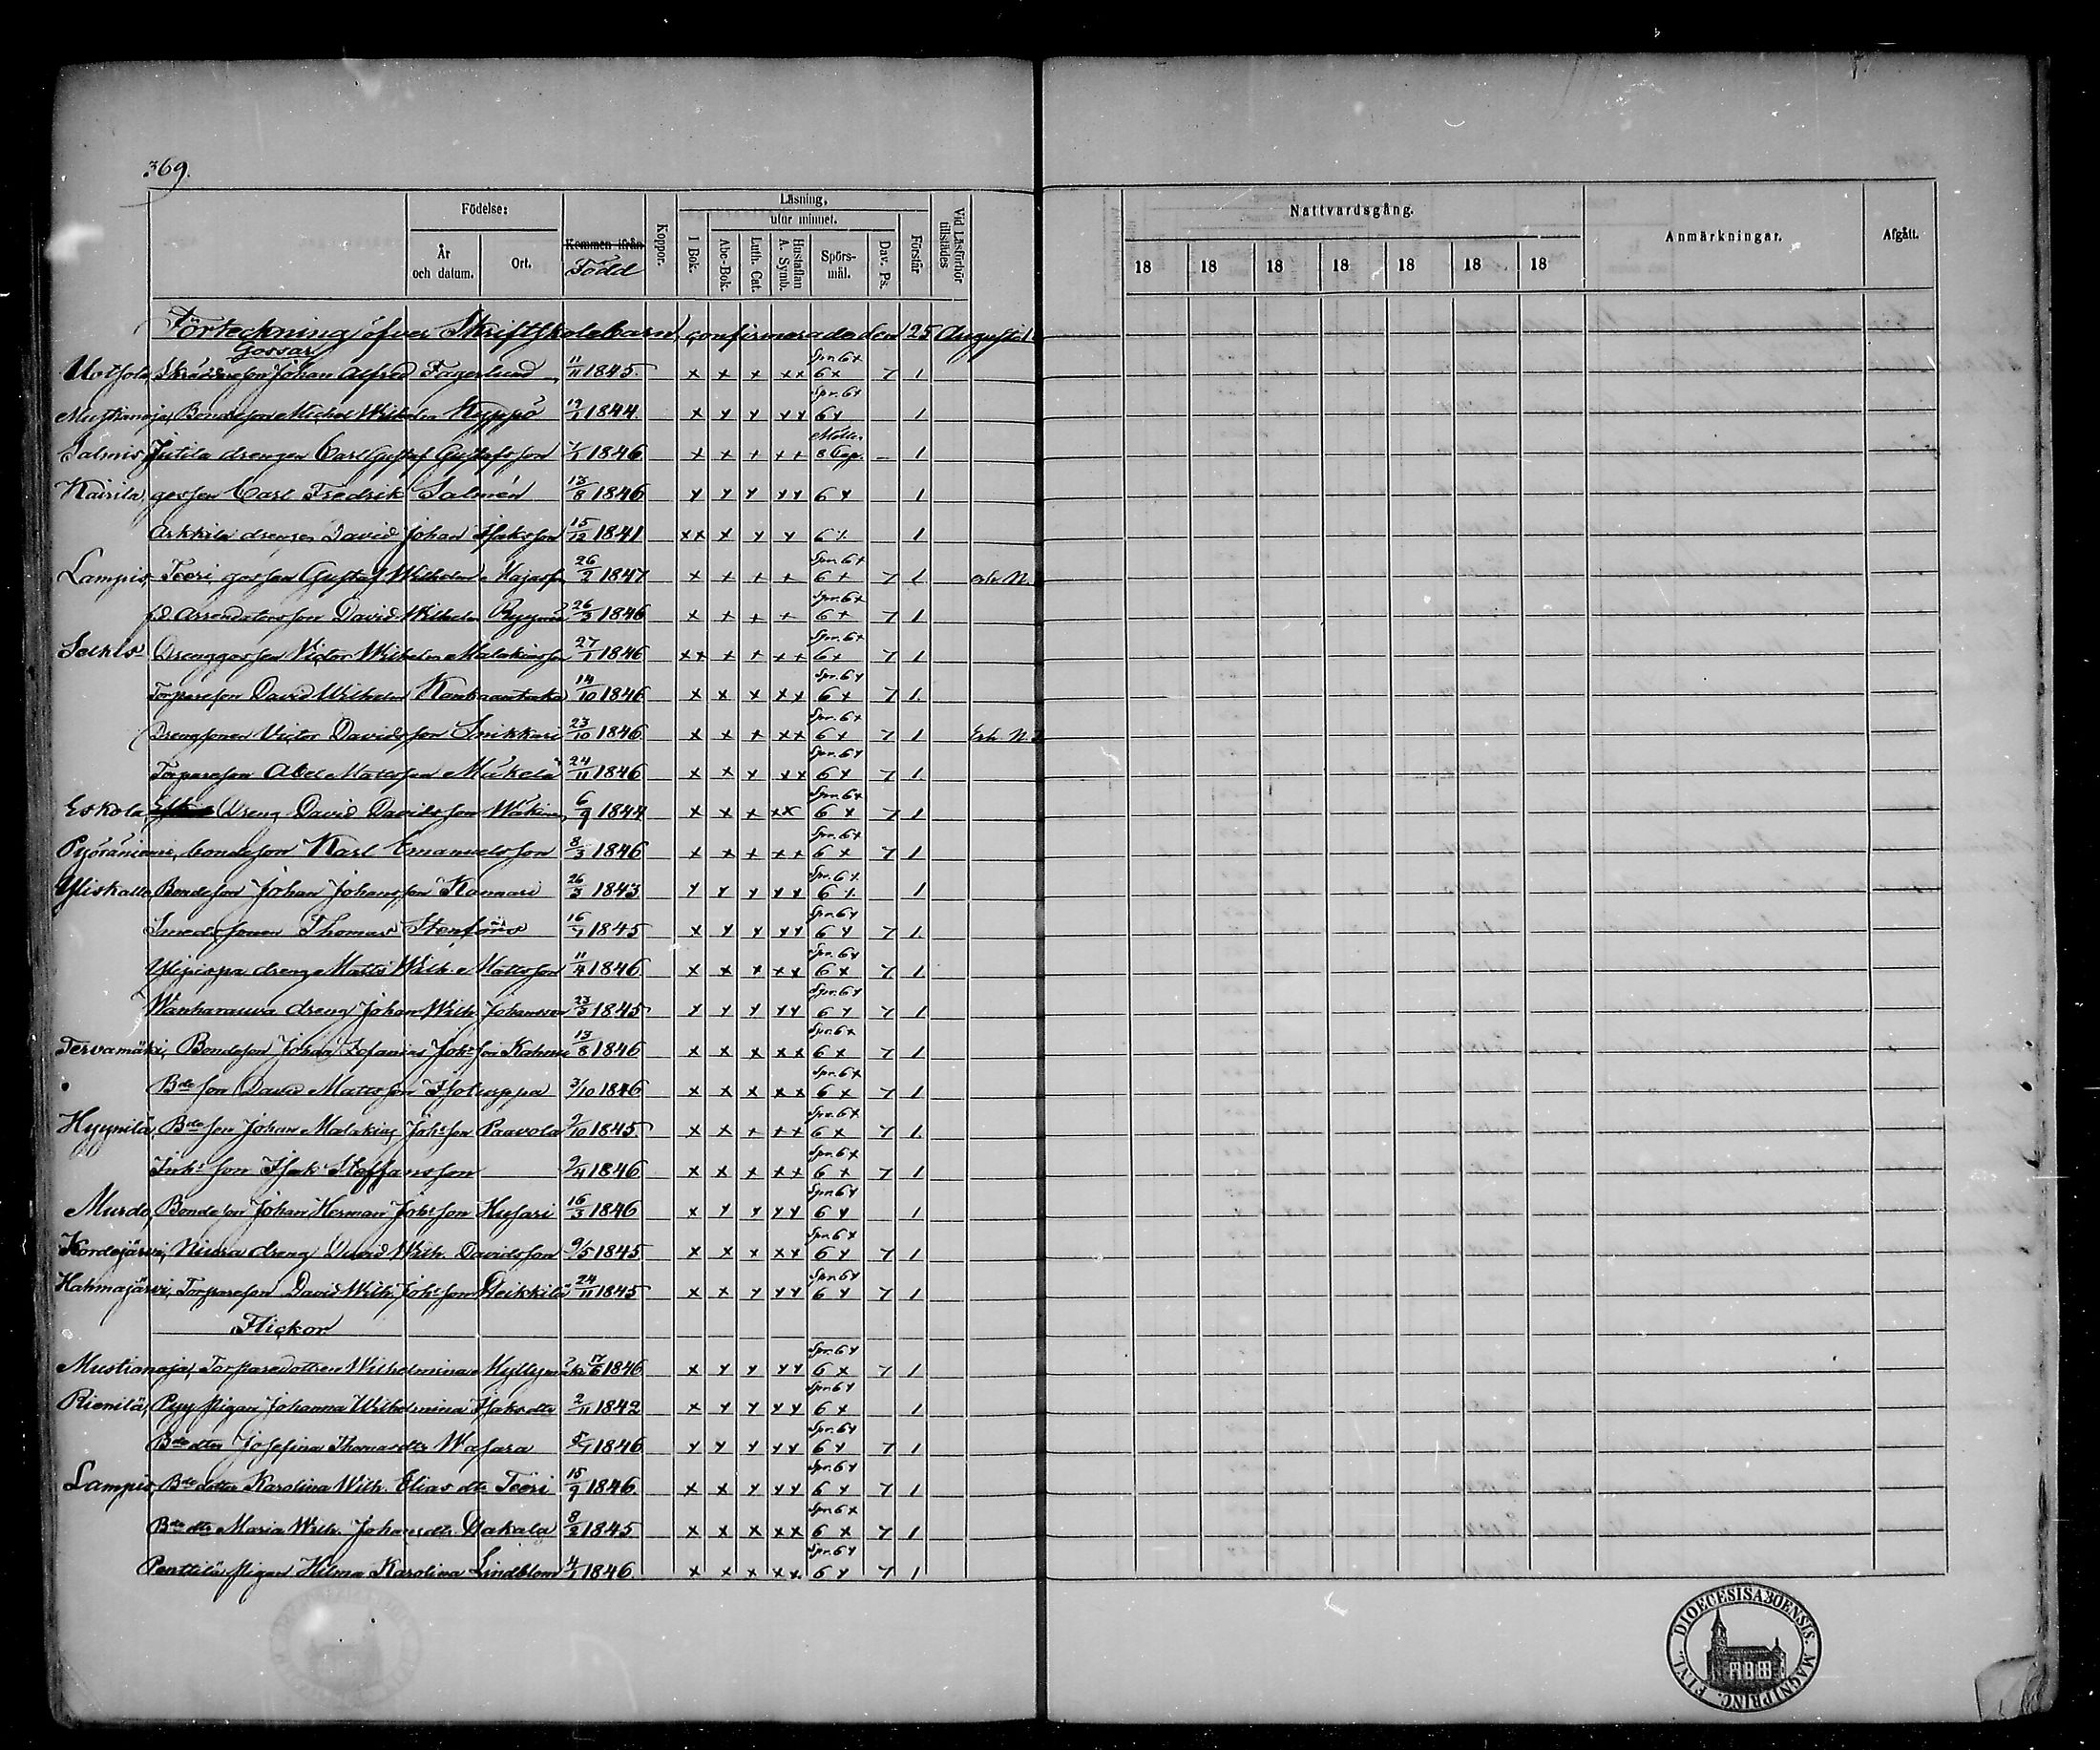 369.
Födelse:
År och datum.
Ort.
Kommen ifrån
Född
Koppor.
Läsning,
utur minnet.
I Bok.
Abc-Bok.
Luth. Cat.
Hustaflan A. Symb.
Spörs-mål.
Dav. Ps.
Förstår
Vid Läsförhör tillstädes
Nattvardsgång.
18 18 18 18 18 18 18
Anmärkningar.
Afgått.
Förteckning öfver Skriftskolebarn, confirmerade den 25 Augusti
Gossar
Skräddareson Johan Alfred Fagerlund 11/11 1845. x x x xx Spr. 6x 6x 7 1
Mustianoja, Bondeson Michel Wilhelm Knyppö 1844. x y y yy Spr. 6y 6y 1
Salmis Jutila drengen Carl Gustaf Gustafsson 1/1 1846 x x + ++ 8 Cap. – 1
Kairila, gossen Carl Fredrik Salmén 13/8 1846 y y y yy 6 y 1
Arkkila drengen David Johan Isaksson 15/12 1841 xx x y y 6 x 1
Lampis, Teeri gossen Gustaf Wilhelm 26/2 1847 x + + + Spr. 6x 6 + 7 1
f.d. Arrendatorsson David Wilhelm 26/3 1846 x + + + Spr. 6x 6 + 7 1
Drenggossen Victor Wilhelm Malakiasson 27/1 1846 xx + + ++ Spr. 6x 6x 7 1
Torpareson David Wilhelm Kankaantaka 14/10 1846 x x x xy Spr. 6y 6 x 7 1.
Drengsonen Victor Davidsson Snikkari 23/10 1846 x x x xx Spr. 6x 6 x 7 1
Torpareson Abel Mattsson Mäkelä 24/11 1846 x x y xx Spr. 6y 6x 7 1
Eskola, Dreng David Davidsson 6/9 1844 x x x xx Spr. 6x 6 x 7 1
Pyöräniemi, bondeson Karl Emanuelsson 8/3 1846 x x x xx Spr. 6x 6 x 7 1
Yliskallo, Bondeson Johan Johansson Kamari 26/3 1843 y y y yy Spr. 6x 6 x 1
Smedssonen Thomas Stenfors 16/7 1845 x y y yy Spr. 6y 6 y 7 1.
Ylipispa dreng Matts Wilh. Mattsson 11/4 1846 x x x xx Spr. 6y 6 x 7 1
Wanharauva dreng Johan Wilh. Johansson 23/3 1845 y y y yy Spr. 6y 6 y 7 1
Tervamäki, Bondeson Johan Zefanias Johsson 13/8 1846 x x x xx Spr. 6x 6 x 7 1
Bdeson David Mattsson Isotuppa 3/10 1846 x x x xx Spr. 6x 6 x 7 1
Hyynilä, Bdeson Johan Malakias Johsson Paavola 9/10 1845. x x + ++ Spr. 6x 6 x 7 1.
Inhsson Isak Staffansson 9/4 1846 x x x xx Spr. 6x 6 x 7 1
Murdo, Bondeson Johan Herman Johsson Husari 16/3 1846 x y y yy Spr. 6y 6 y 1
Kordejärvi, Niura dreng David Wilh. Davidsson 9/5 1845 x x x xx Spr. 6x 6 y 7 1
Hahmajärvi, Torpareson David Wilh. Johsson Heikkilä 24/11 1845 x x y yy Spr. 6y 6 y 7 1
Flickor
Mustianoja, Torparedottren Wilhelmina Myllymäki 17/6 1846 x y y yy Spr. 6y 6 x 7 1
Rienilä, Pyy pigan Johanna Wilhelmina Isaksdtr 2/11 1842 x y y yy Spr. 6y 6 x 1
Bdedtr Josefina Thomasdtr Wasara 5/7 1846 y y y yy Spr. 6y 6 y 7 1
Lampis, Bdedotter Karolina Wilh. Eliasdtr Teeri 15/9 1846. x x y yy Spr. 6y 6 y 7 1
Bdedtr Maria Wilh. Johansdtr Dakala 8/2 1845 x x x xx Spr. 6x 6 x 7 1
Penttilä pigan Hilma Karolina Lindblom 4/1 1846. x x x xx Spr. 6y 6 y 7 1
DIOECESIS ABOENSIS. MAGNI PRINC. FINL.